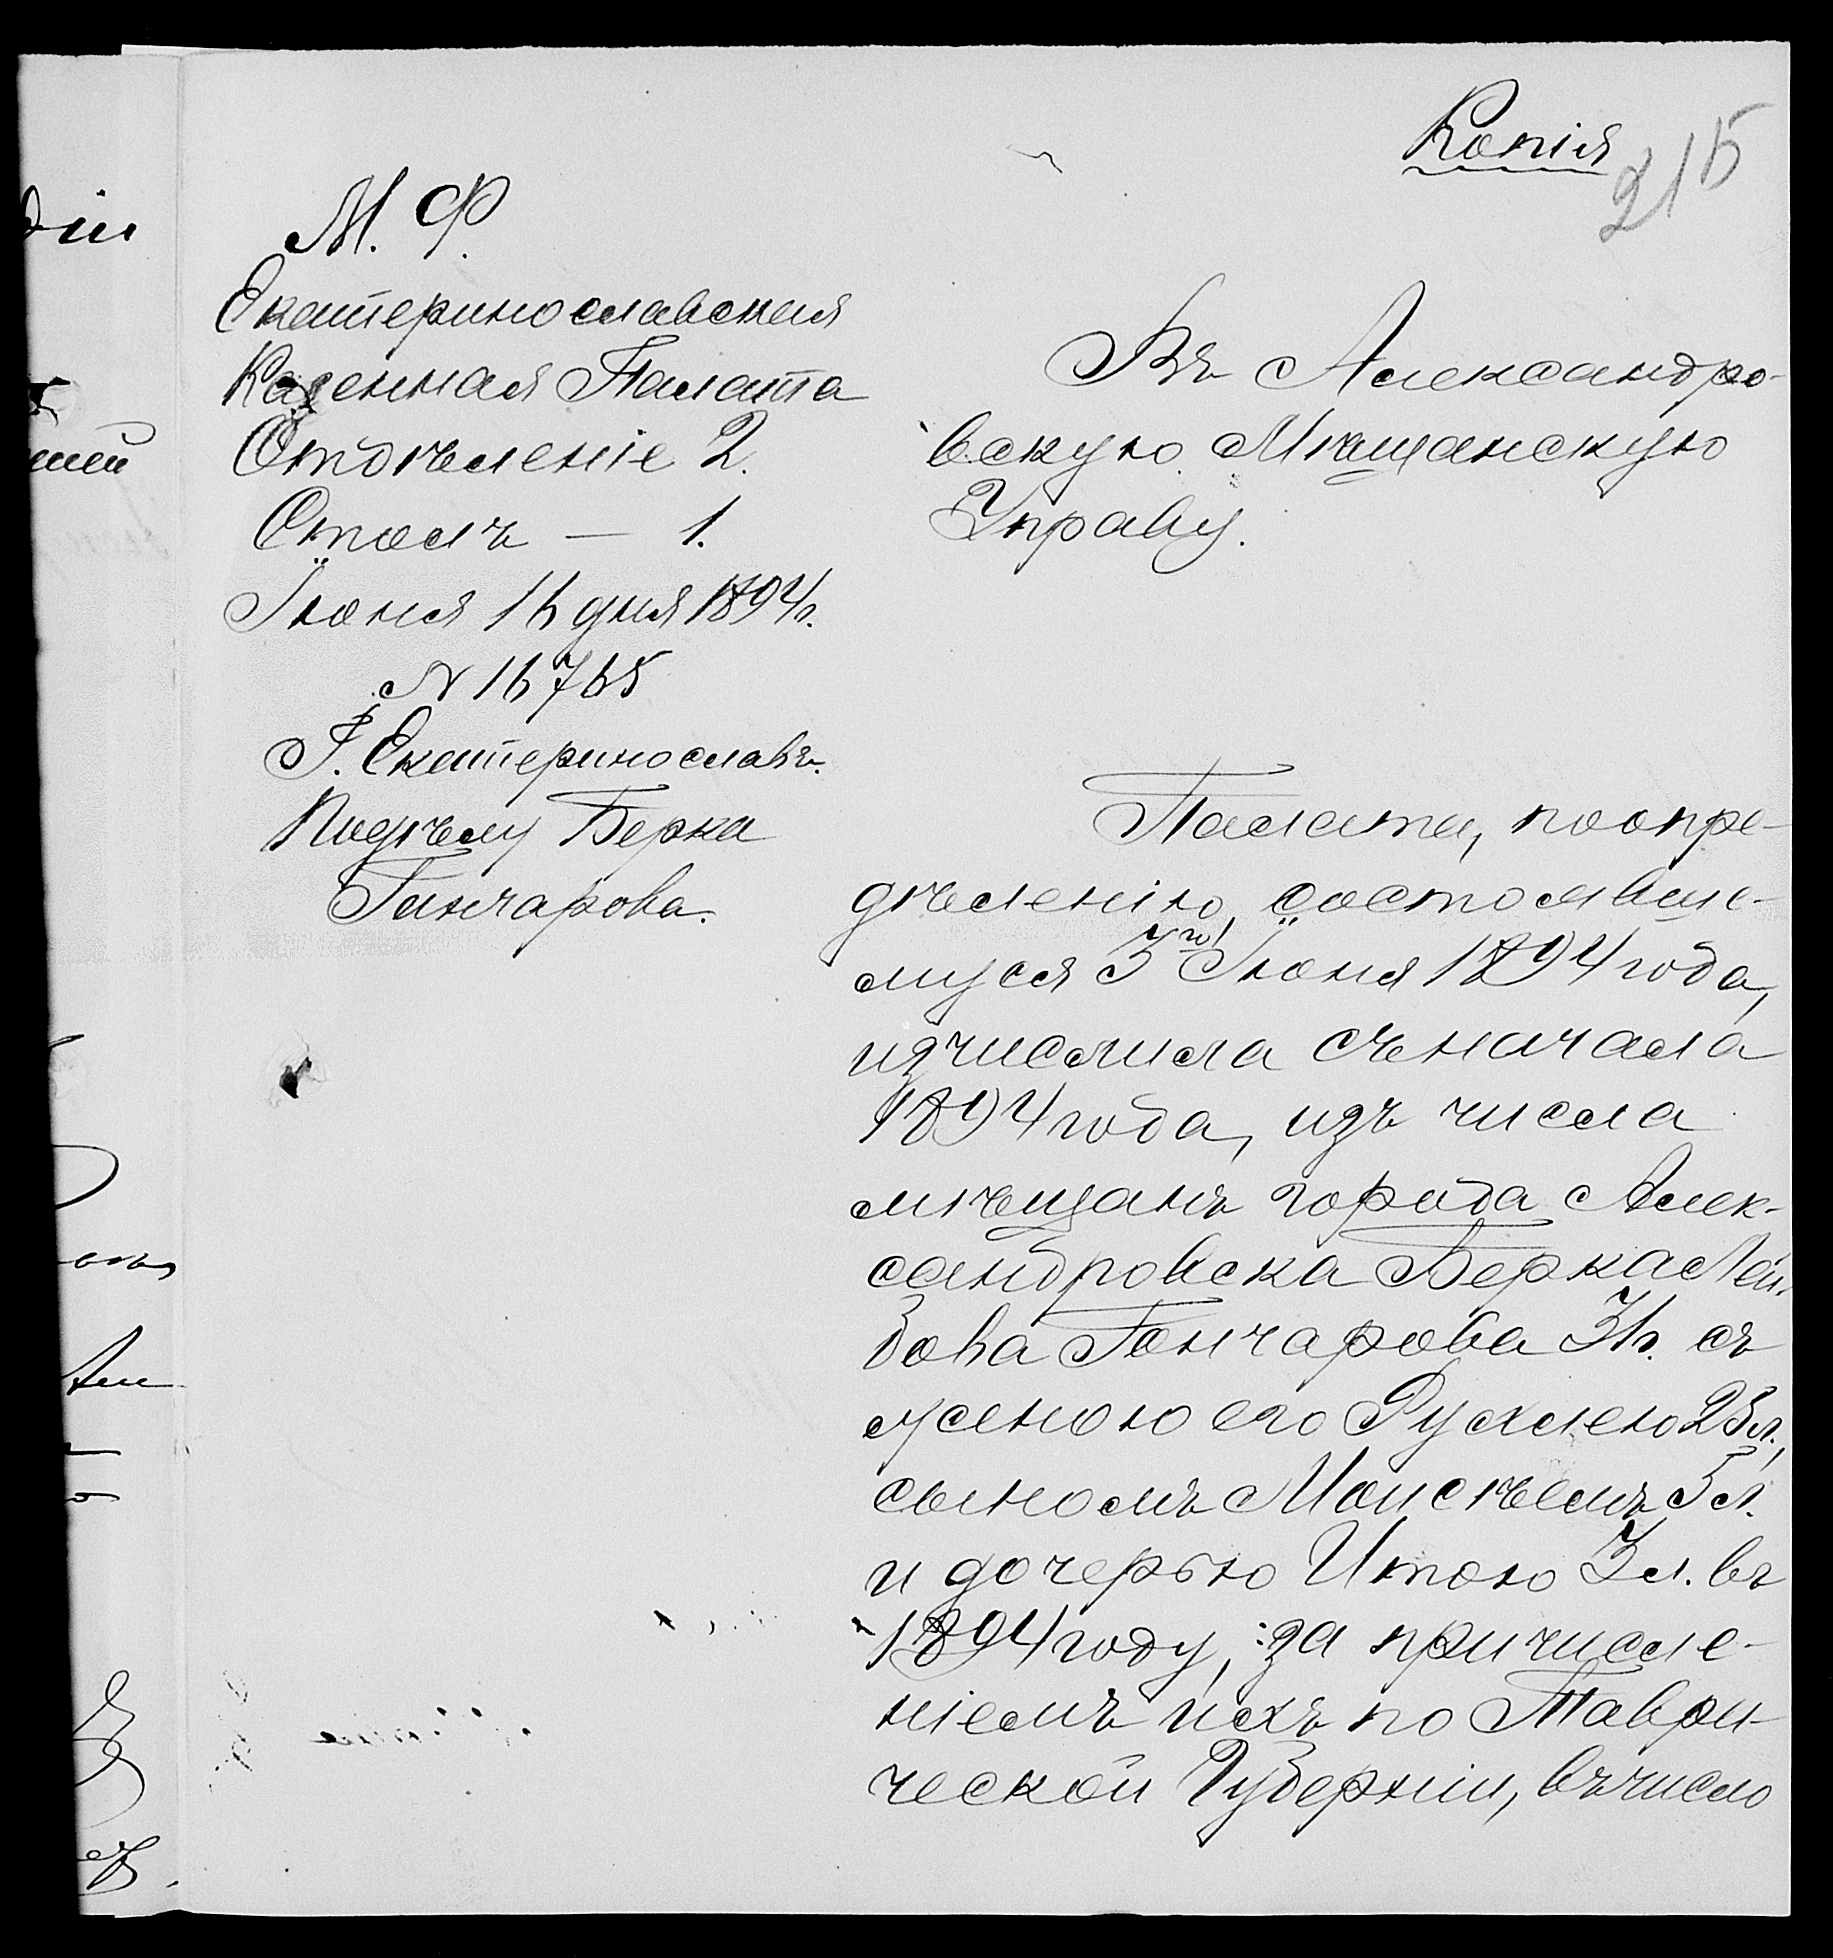 Копія
215
М. Ф.
Екатеринославская
Казенная Палата
Отдѣленіе 2.
Столъ — 1.
Іюня 16 дня 1894 г.
№ 16765
Г. Екатеринославъ.
По дѣлу Берка
Гончарова.
Въ Александро-
вскую Мѣщанскую
Управу.
Палата, по опре-
дѣленію, состоявше-
муся 3го Іюня 1894 года,
изчислила съ начала
1894 года, изъ числа
мѣщанъ города Алек-
сандровска Берка Лей-
бова Гончарова 36. съ
женою его Рухлею 28 л.,
сыномъ Моисѣемъ 5 л.
и дочерью Итою 3 л. въ
1894 году, за причисле-
ніемъ ихъ по Таври-
ческой Губерніи, въ число